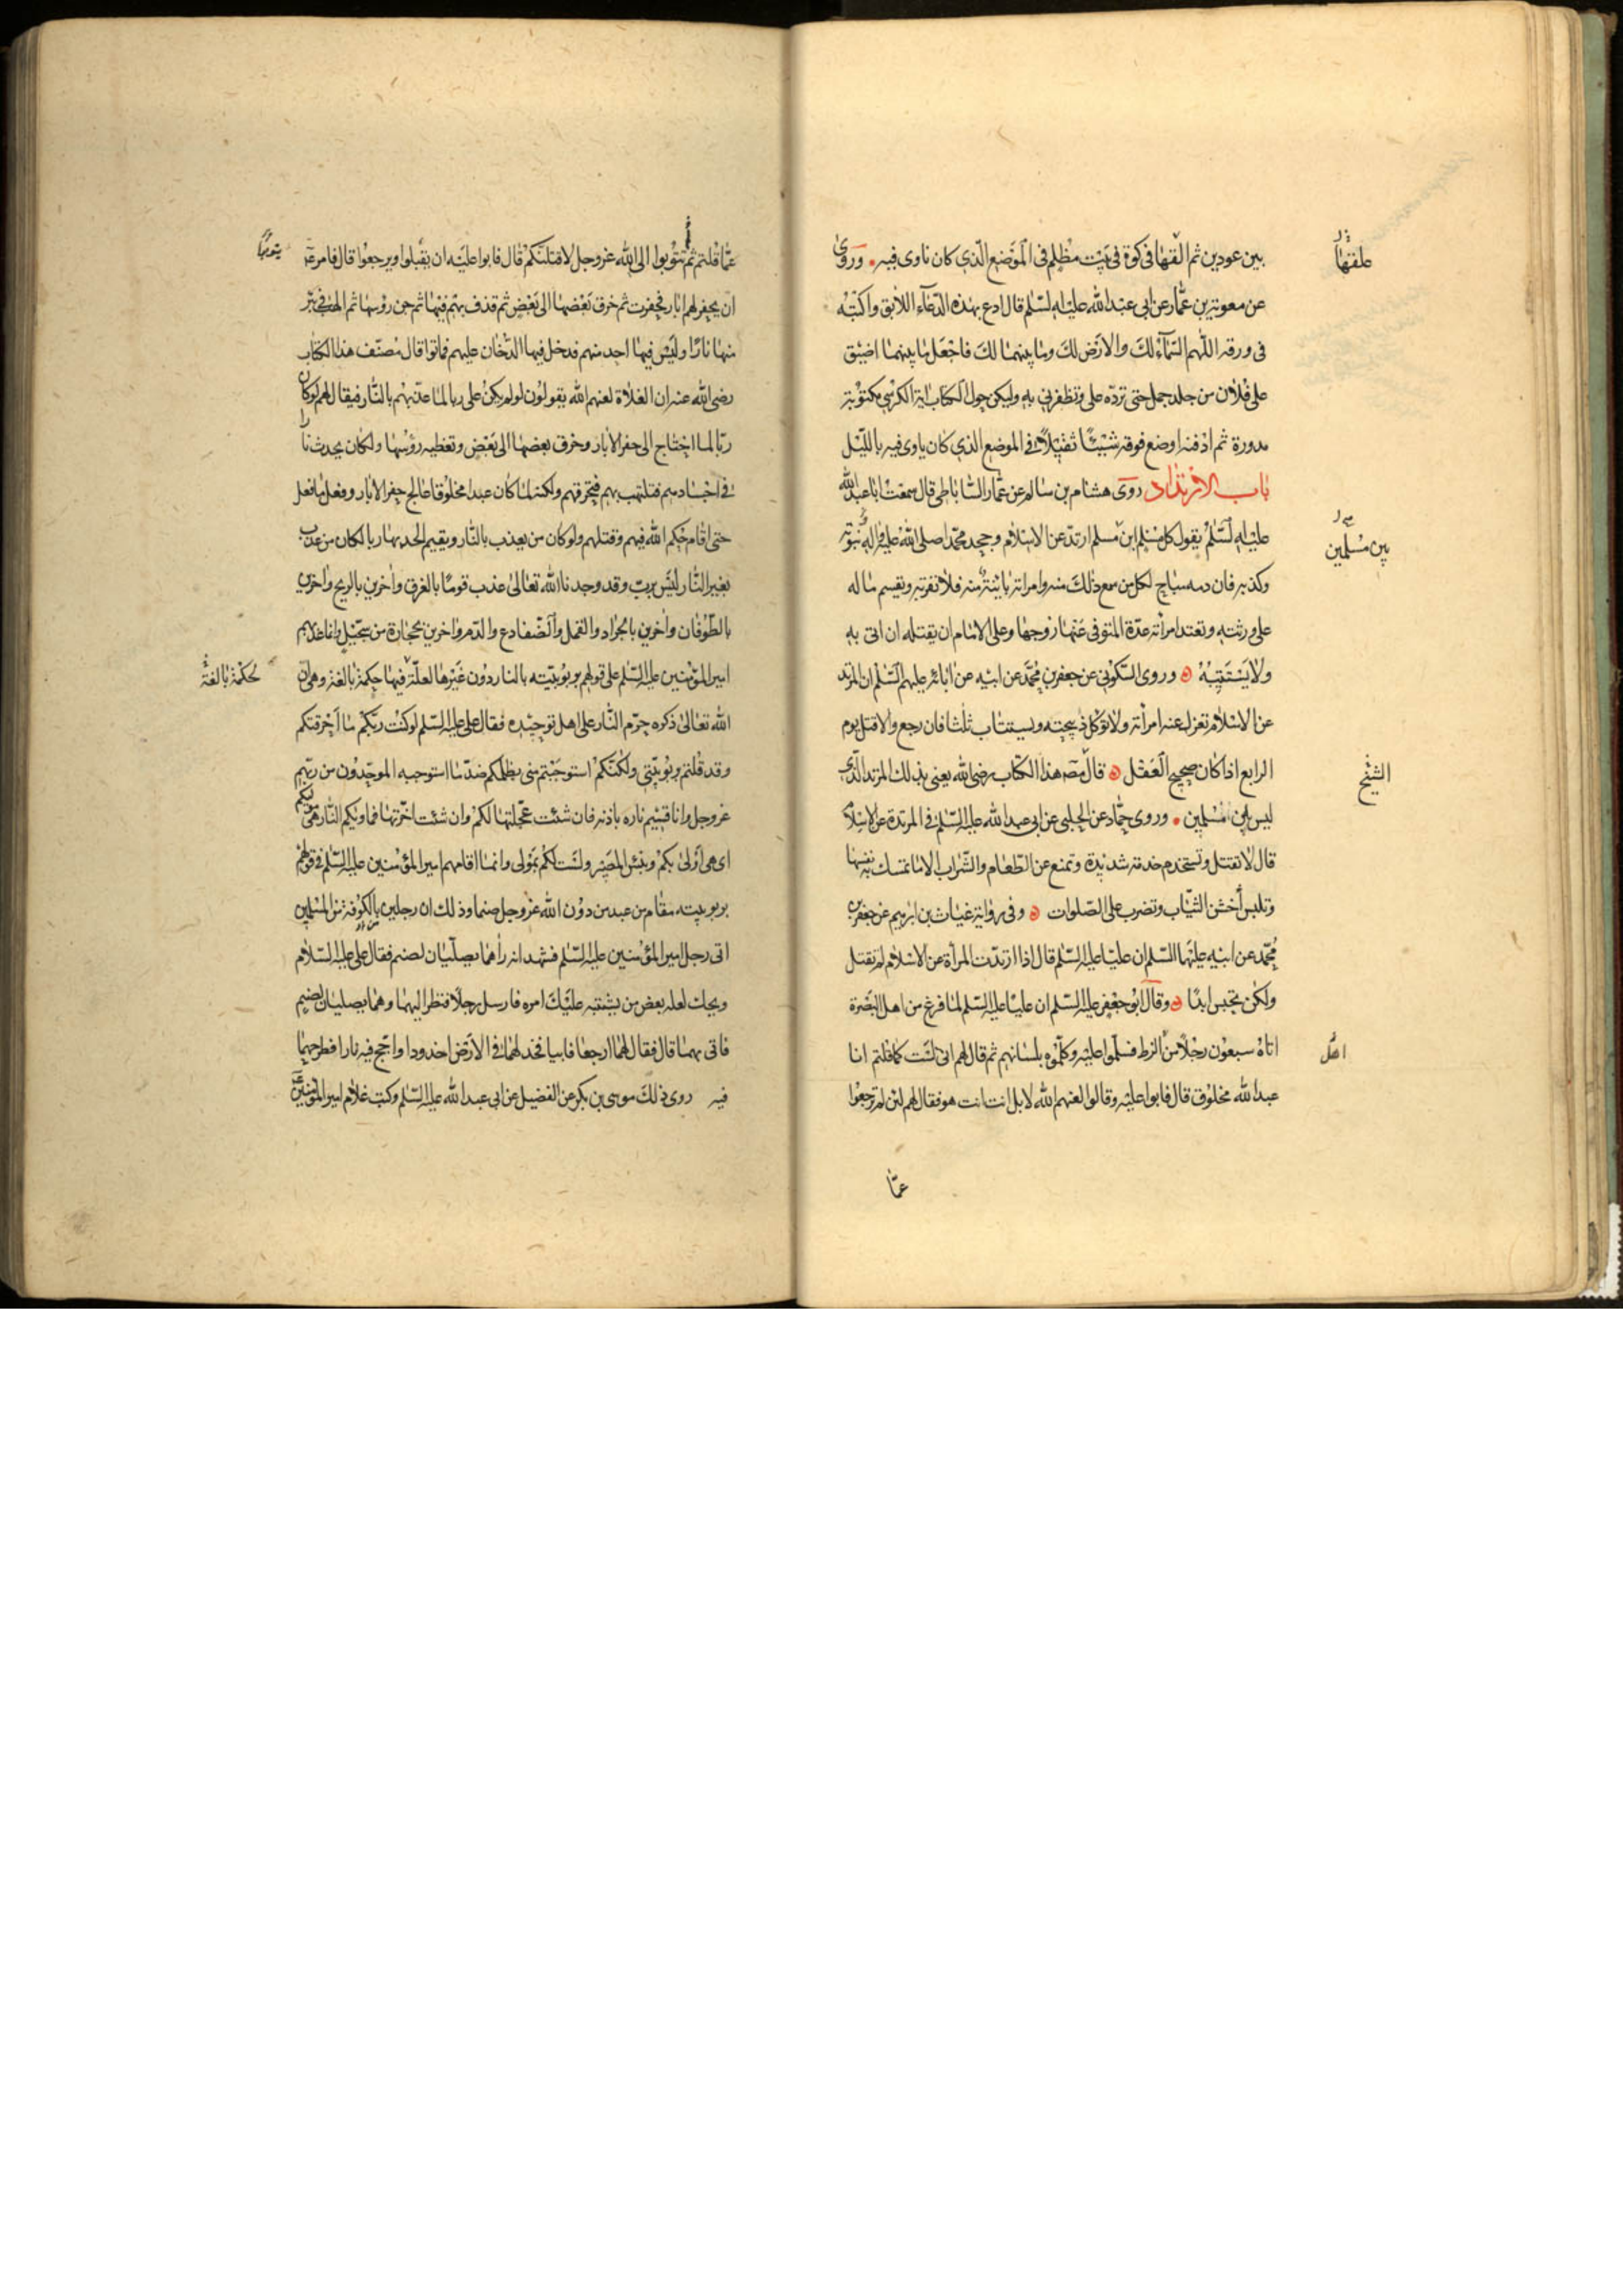 بين عودين ثم القها فى كوة فى بيت مظلم فى الموضع الذى كان ناوى فيه وروى
عن معوية بن عمار عن ابى عبد الله عليه السلم قال ادع بهذه الدعاء اللابق واكتبه
فى ورقه اللهم السماء لك والارض لك وما بينهما لك فاجعل ما بينهما اضيق
على فلان من جلد جمل حتى ترده على وتظفرنى به وليكن حول الكتاب اية الكرسى مكتوبة
مدورة ثم ادفنه اوضع فوقه شيئا ثقيلا فى الموضع الذى كان ياوى فيه بالليل
باب الارتداد روى هشام بن سالم عن عمار الساباطى قال سمعت ابا عبد الله
عليه السلم يقول كل مسلم ابن مسلم ارتد عن الاسلام وجحد محمدا صلى الله عليه واله نبوته
وكذبه فان دمه مباح لكل من سمع ذلك منه وامراته باينة منه فلا تقربه ويقسم ماله
على ورثته وتعتد امراته عدة المتوفى عنها زوجها وعلى الامام ان يقتله ان اتى به
ولا يستتيبه وروى السكونى عن جعفر بن محمد عن ابيه عن ابائه عليهم السلم ان المرتد
عن الاسلام تعزل عنه امراته ولا تؤكل ذبيحته ويستتاب ثلثا فان رجع والا قتل يوم
الرابع اذا كان صحيح العقل قال مصه هذا الكتاب رضى الله يعنى بذلك المرتد الذى
ليس بابن مسلمين وروى حماد عن الحلبى عن ابى عبد الله عليه السلم فى المرتدة عن الاسلام
قال لا تقتل وتستخدم خدمة شديدة وتمنع عن الطعام والشراب الا ما تمسك به نفسها
وتلبس أخشن الثياب وتضرب على الصلوات وفى رواية غياث بن ابرهيم عن جعفر بن
محمد عن ابيه عليهما السلم ان عليا عليه السلم قال اذا ارتدت المرأة عن الاسلام لم تقتل
ولكن تحبس ابدا وقال ابو جعفر عليه السلم ان عليا عليه السلم لما فرغ من اهل البصرة
اتاه سبعون رجلا من الزط فسلموا عليه وكلموه بلسانهم ثم قال لهم انى لست كما قلتم انا
عبد الله مخلوق قال فابوا عليه وقالوا لعنهم الله لا بل انت انت هو فقال لهم لئن لم ترجعوا
عما
علقها
بين مسلمين
الشيخ
اهل
عما قلتم ثم تتوبوا الى الله عز وجل لاقتلنكم قال فابوا عليه ان يقبلوا ويرجعوا قال فامر عه
ان يحفر لهم ابار فحفرت ثم خرق بعضها الى بعض ثم قذف بهم فيها ثم جن رؤسها ثم الهب فى بئر
منها نارا وليس فيها احد منهم فدخل فيها الدخان عليهم فماتوا قال مصنف هذا الكتاب
رضى الله عنه ان الغلاة لعنهم الله يقولون لو لم يكن على ربا لما عذبهم بالنار فيقال لهم لو كان
ربا لما احتاج الى حفر الابار وخرق بعضها الى بعض وتغطيه رؤسها ولكان يحدث نارا
فى اجسادهم فتلتهب بهم فتحرقهم ولكنه لما كان عبدا مخلوقا عالج حفر الابار وفعل ما فعل
حتى اقام حكم الله فيهم وقتلهم ولو كان من يعذب بالنار ويقيم الحد بها ربا لكان من عذب
بغير النار ليس برب وقد وجدنا الله تعالى عذب قوما بالغرق واخرين بالريح واخرين
بالطوفان واخرين بالجراد والقمل والضفادع والدم واخرين بحجارة من سجيل وانما عذبهم
امير المؤمنين عليه السلم على قولهم بربوبيته بالنار دون غيرها لعلة فيها حكمة بالغة وهى ان
الله تعالى ذكره حرم النار على اهل توحيده فقال على عليه السلم لو كنت ربكم ما احرقتكم
وقد قلتم بربوبيتى ولكنكم استوجبتم منى بظلمكم ضد ما استوجبه الموحدون من ربهم
عز وجل وانا قسيم ناره باذنه فان شئت عجلتها لكم وان شئت اخرتها فماويكم النار هى موليكم
اى هى اولى بكم وبئس المصير ولست لكم بمولى وانما اقامهم امير المؤمنين عليه السلم فى قولهم
بربوبيته مقام من عبد من دون الله عز وجل صنما وذلك ان رجلين بالكوفة من المسلمين
اتى رجل امير المؤمنين عليه السلم فشهد انه راهما يصليان لصنم فقال على عليه السلام
ويحك لعله بعض من يشتبه عليك امره فارسل رجلا فنظر اليهما وهما يصليان لصنم
فاتى بهما قال فقال لهما ارجعا فابيا فخد لهما فى الارض اخدودا واجج فيه نارا فطرحهما
فيه روى ذلك موسى بن بكر عن الفضيل عن ابى عبد الله عليه السلم وكتب غلام امير المؤمنين
لحكمة بالغة